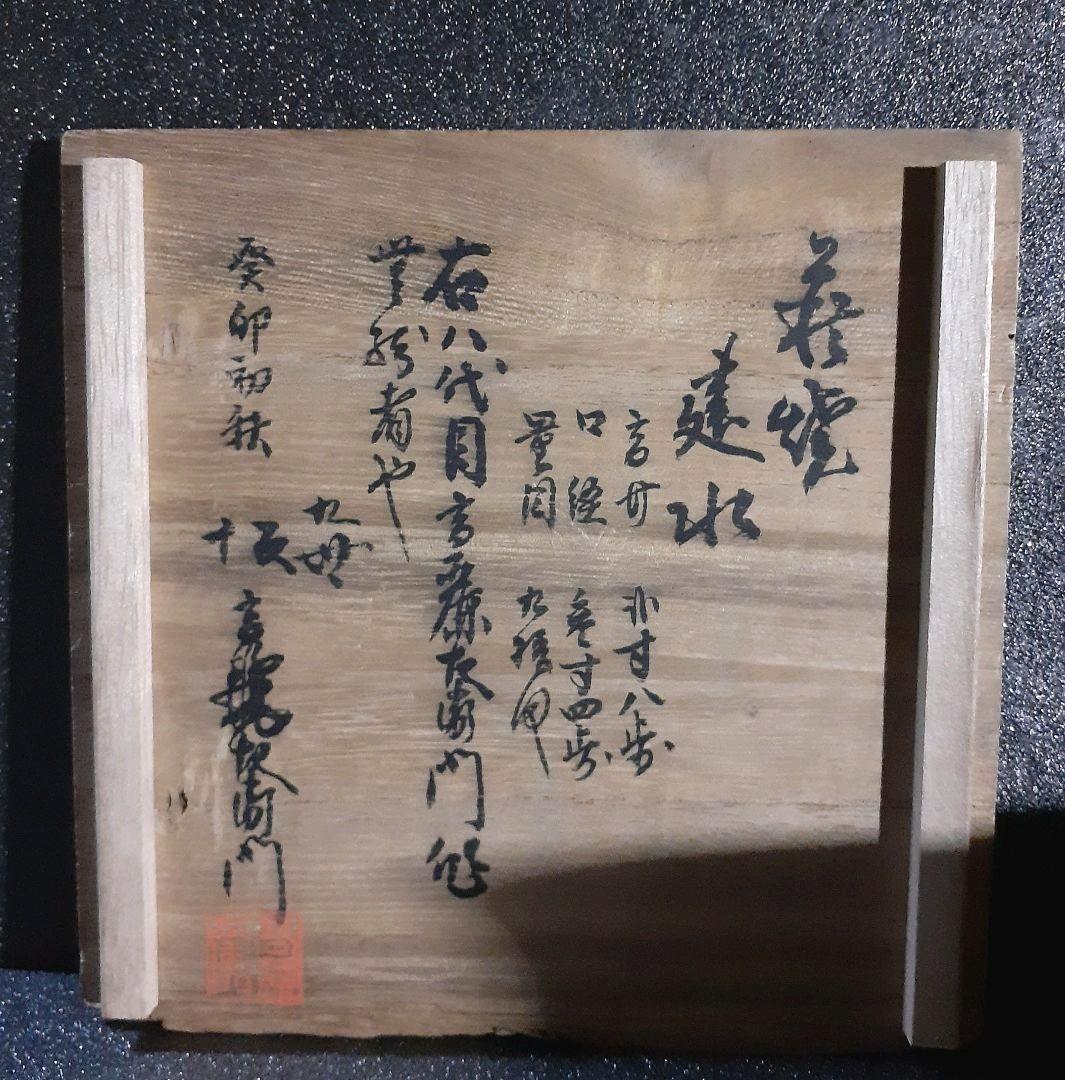 萩焼
建水
高サ 弐寸八歩
口径 参寸四歩
量目 九拾匁
右八代目高麗左衛門作
無紛者也
癸卯初秋
九世
十一代
坂高麗左衛門